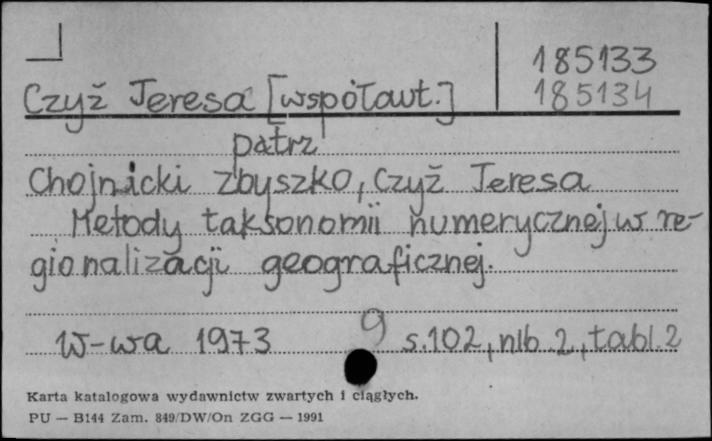 185133
Czyż Teresa [współaut.] 185134
patrz
Chojnicki Zbyszko, Czyż Teresa
Metody taksonomii numerycznej w re-
gionalizacji geograficznej.
W-wa 1973 9 s.102, nlb.2, tabl.2
Karta katalogowa wydawnictw zwartych i ciągłych.
PU — B144 Zam. 849/DW/On ZGG — 1991